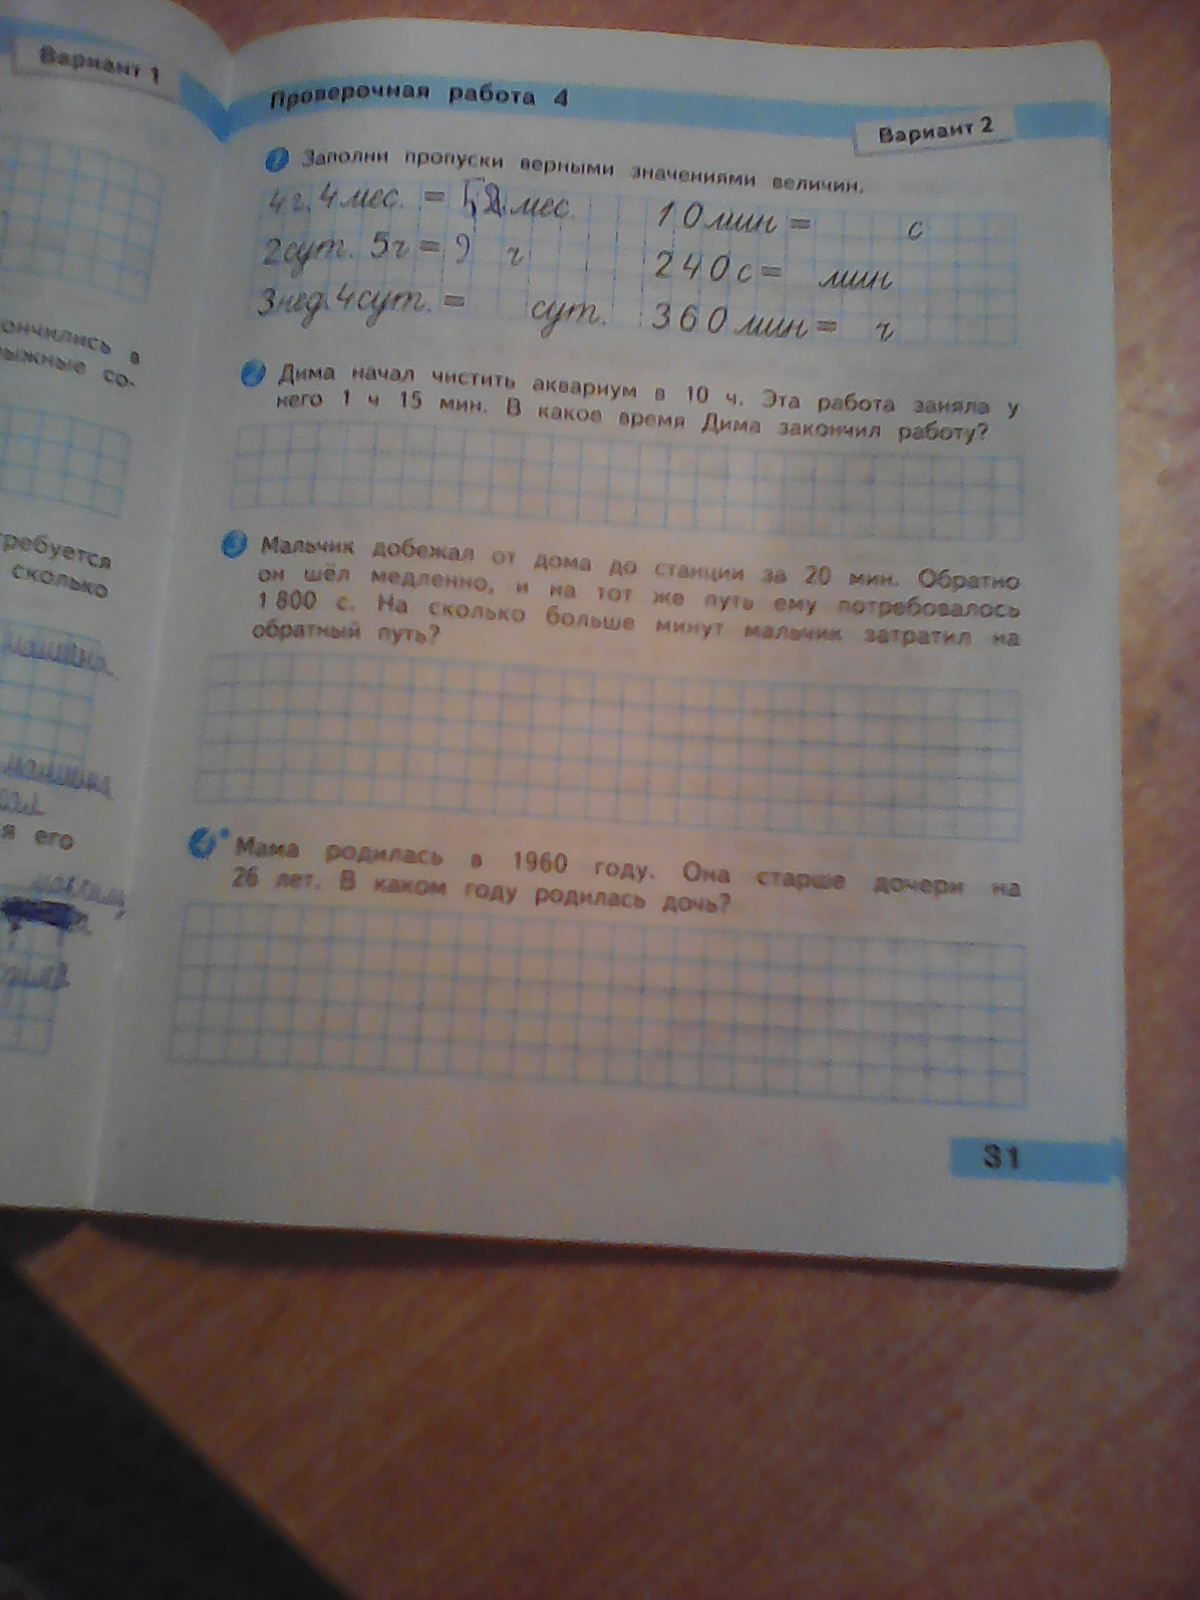 Вариант 1
Проверочная работа 4
Вариант 2
1 Заполни пропуски верными значениями величин.
4 г. 4 мес. = 52 мес. 10 мин = с
2 сут. 5 ч = 9 ч 240 с = мин
3 нед. 4 сут. = сут. 360 мин = ч
2 Дима начал чистить аквариум в 10 ч. Эта работа заняла у
него 1 ч 15 мин. В какое время Дима закончил работу?
3 Мальчик добежал от дома до станции за 20 мин. Обратно
он шёл медленно, и на тот же путь ему потребовалось
1 800 с. На сколько больше минут мальчик затратил на
обратный путь?
4* Мама родилась в 1960 году. Она старше дочери на
26 лет. В каком году родилась дочь?
31
ончились в
ыжные со-
требуется
сколько
машина
машина
я его